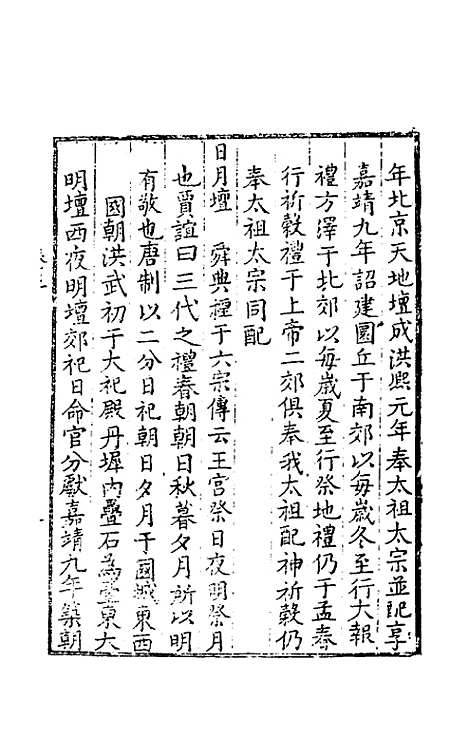 年北京天地壇成洪熙元年奉太祖太宗並配享
嘉靖九年詔建圜丘于南郊以每歲冬至行大報
禮方澤于北郊以每歲夏至行祭地禮仍于孟春
行祈穀禮于上帝二郊俱奉我太祖配神祈穀仍
奉太祖太宗同配
日月壇 舜典禋于六宗傳云王宫祭日夜明祭月
也賈誼曰三代之禮春朝朝日秋暮夕月所以明
有敬也唐制以二分日祀朝日夕月于國城東西
國朝洪武初于大祀殿丹墀內疊石為臺東大
明壇西夜明壇郊祀日命官分獻嘉靖九年築朝